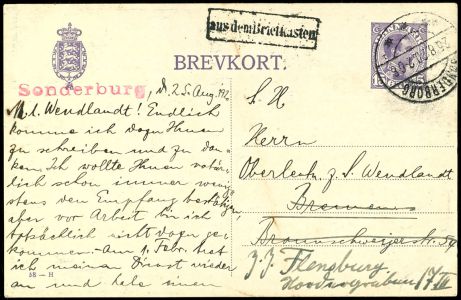 aus dem Briefkasten
BREVKORT.
Sonderburg, d. 25. Aug. 192
M. l. Wendlandt! Endlich
komme ich dazu Ihnen
zu schreiben und zu dan-
ken. Ich wollte Ihnen natür-
lich schon immer wenig-
stens den Empfang bestätigen,
aber vor Arbeit bin ich
tatsächlich nicht dazu ge-
kommen. Am 1. Febr. trat
ich meinen Dienst wieder
an und habe einen
58 - H
S. H
Herrn
Oberleutn. z. S. Wendlandt
Bremen
Braunschweigerstr. 59
Flensburg
SONDERBORG